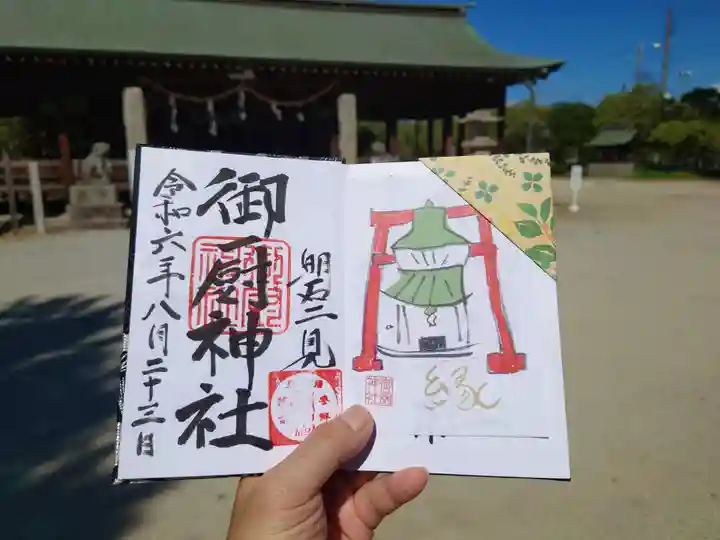 明石二見
御厨神社
令和六年八月二十三日
縁